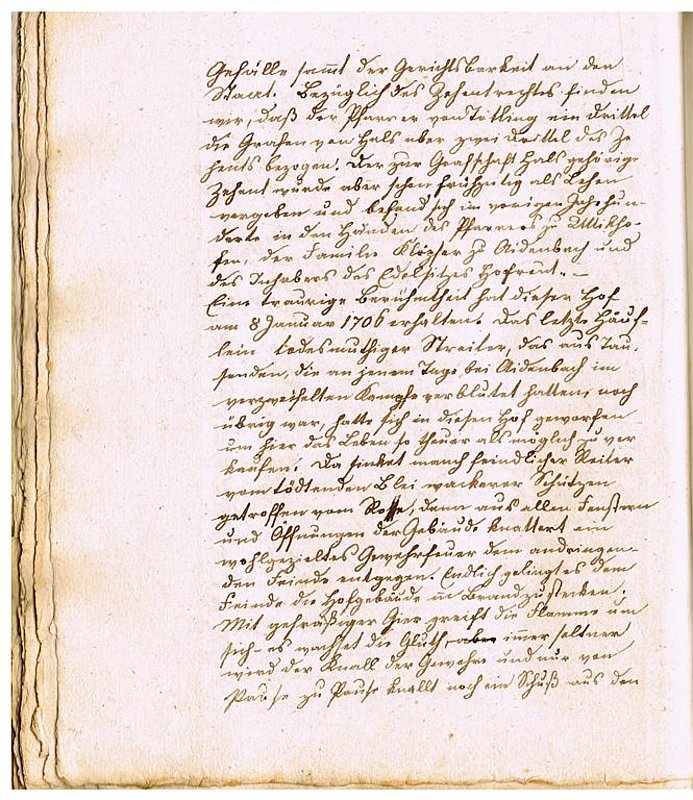 Gefälle sammt der Gerichtsbarkeit an den
Staat. Bezüglich des Zehentrechtes finden
wir, daß der Pfarrer von Tötling ein Drittel
die Grafen von Hals aber zwei Drittel des Ze
hents bezogen. Der zur Grafschaft Hals gehörige
Zehent wurde aber schon frühzeitig als Lehen
vergeben und befand sich im vorigen Jahrhun-
derte in den Händen des Pfarrers zu
fen, der Familie Klöpfer zu Aidenbach und
des Inhabers des Edelsitzes Hofreut. –
Eine traurige Berühmtheit hat dieser Hof
am 8 Januar 1706 erhalten. Das letzte Häuf-
lein todesmuthiger Streiter, das aus Tau-
senden, die an jenem Tage bei Aidenbach im
verzweifelten Kampfe verblutet hatten, noch
übrig war, hatte sich in diesen Hof geworfen
um hier das Leben so theuer als möglich zu ver
kaufen. Da sinket manch feindlicher Reiter
vom tödtenden Blei wackerer Schützen
getroffen vom Rosse, denn aus allen Fenstern
und Öffnungen der Gebäude knattert ein
wohlgezieltes Gewehrfeuer dem andringen-
den Feinde entgegen. Endlich gelingt es dem
Feinde die Hofgebäude in Brand zu stecken.
Mit gefräßiger Gier greift die Flamme um
sich – es wachset die Gluth, aber immer seltner
wird der Knall der Gewehre und nur von
Pause zu Pause knallt noch ein Schuß aus den